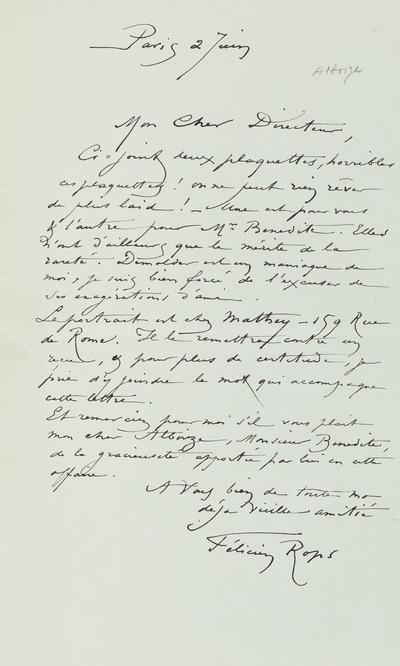 Paris 2 Juin
Alboize
Mon Cher Directeur,
Ci-joint deux plaquettes, horribles
ces plaquettes ! on ne peut rien rêver
de plus laid ! – Une est pour vous
& l'autre pour Mr Benedite. Elles
n'ont d'ailleurs que le mérite de la
rareté. Demolder est un maniaque de
moi, je suis bien forcé de l'excuser de
ses exagérations d'ami.
Le portrait est chez Mathey – 159 Rue
de Rome. Il le remettra contre un
reçu, & pour plus de certitude, je
prie d'y joindre le mot qui accompagne
cette lettre.
Et remerciez pour moi s'il vous plait
mon cher Alboize, Monsieur Benedite,
de la gracieuseté apportée par lui en cette
affaire.
A Vous bien de toute ma
déja vieille amitié
Félicien Rops